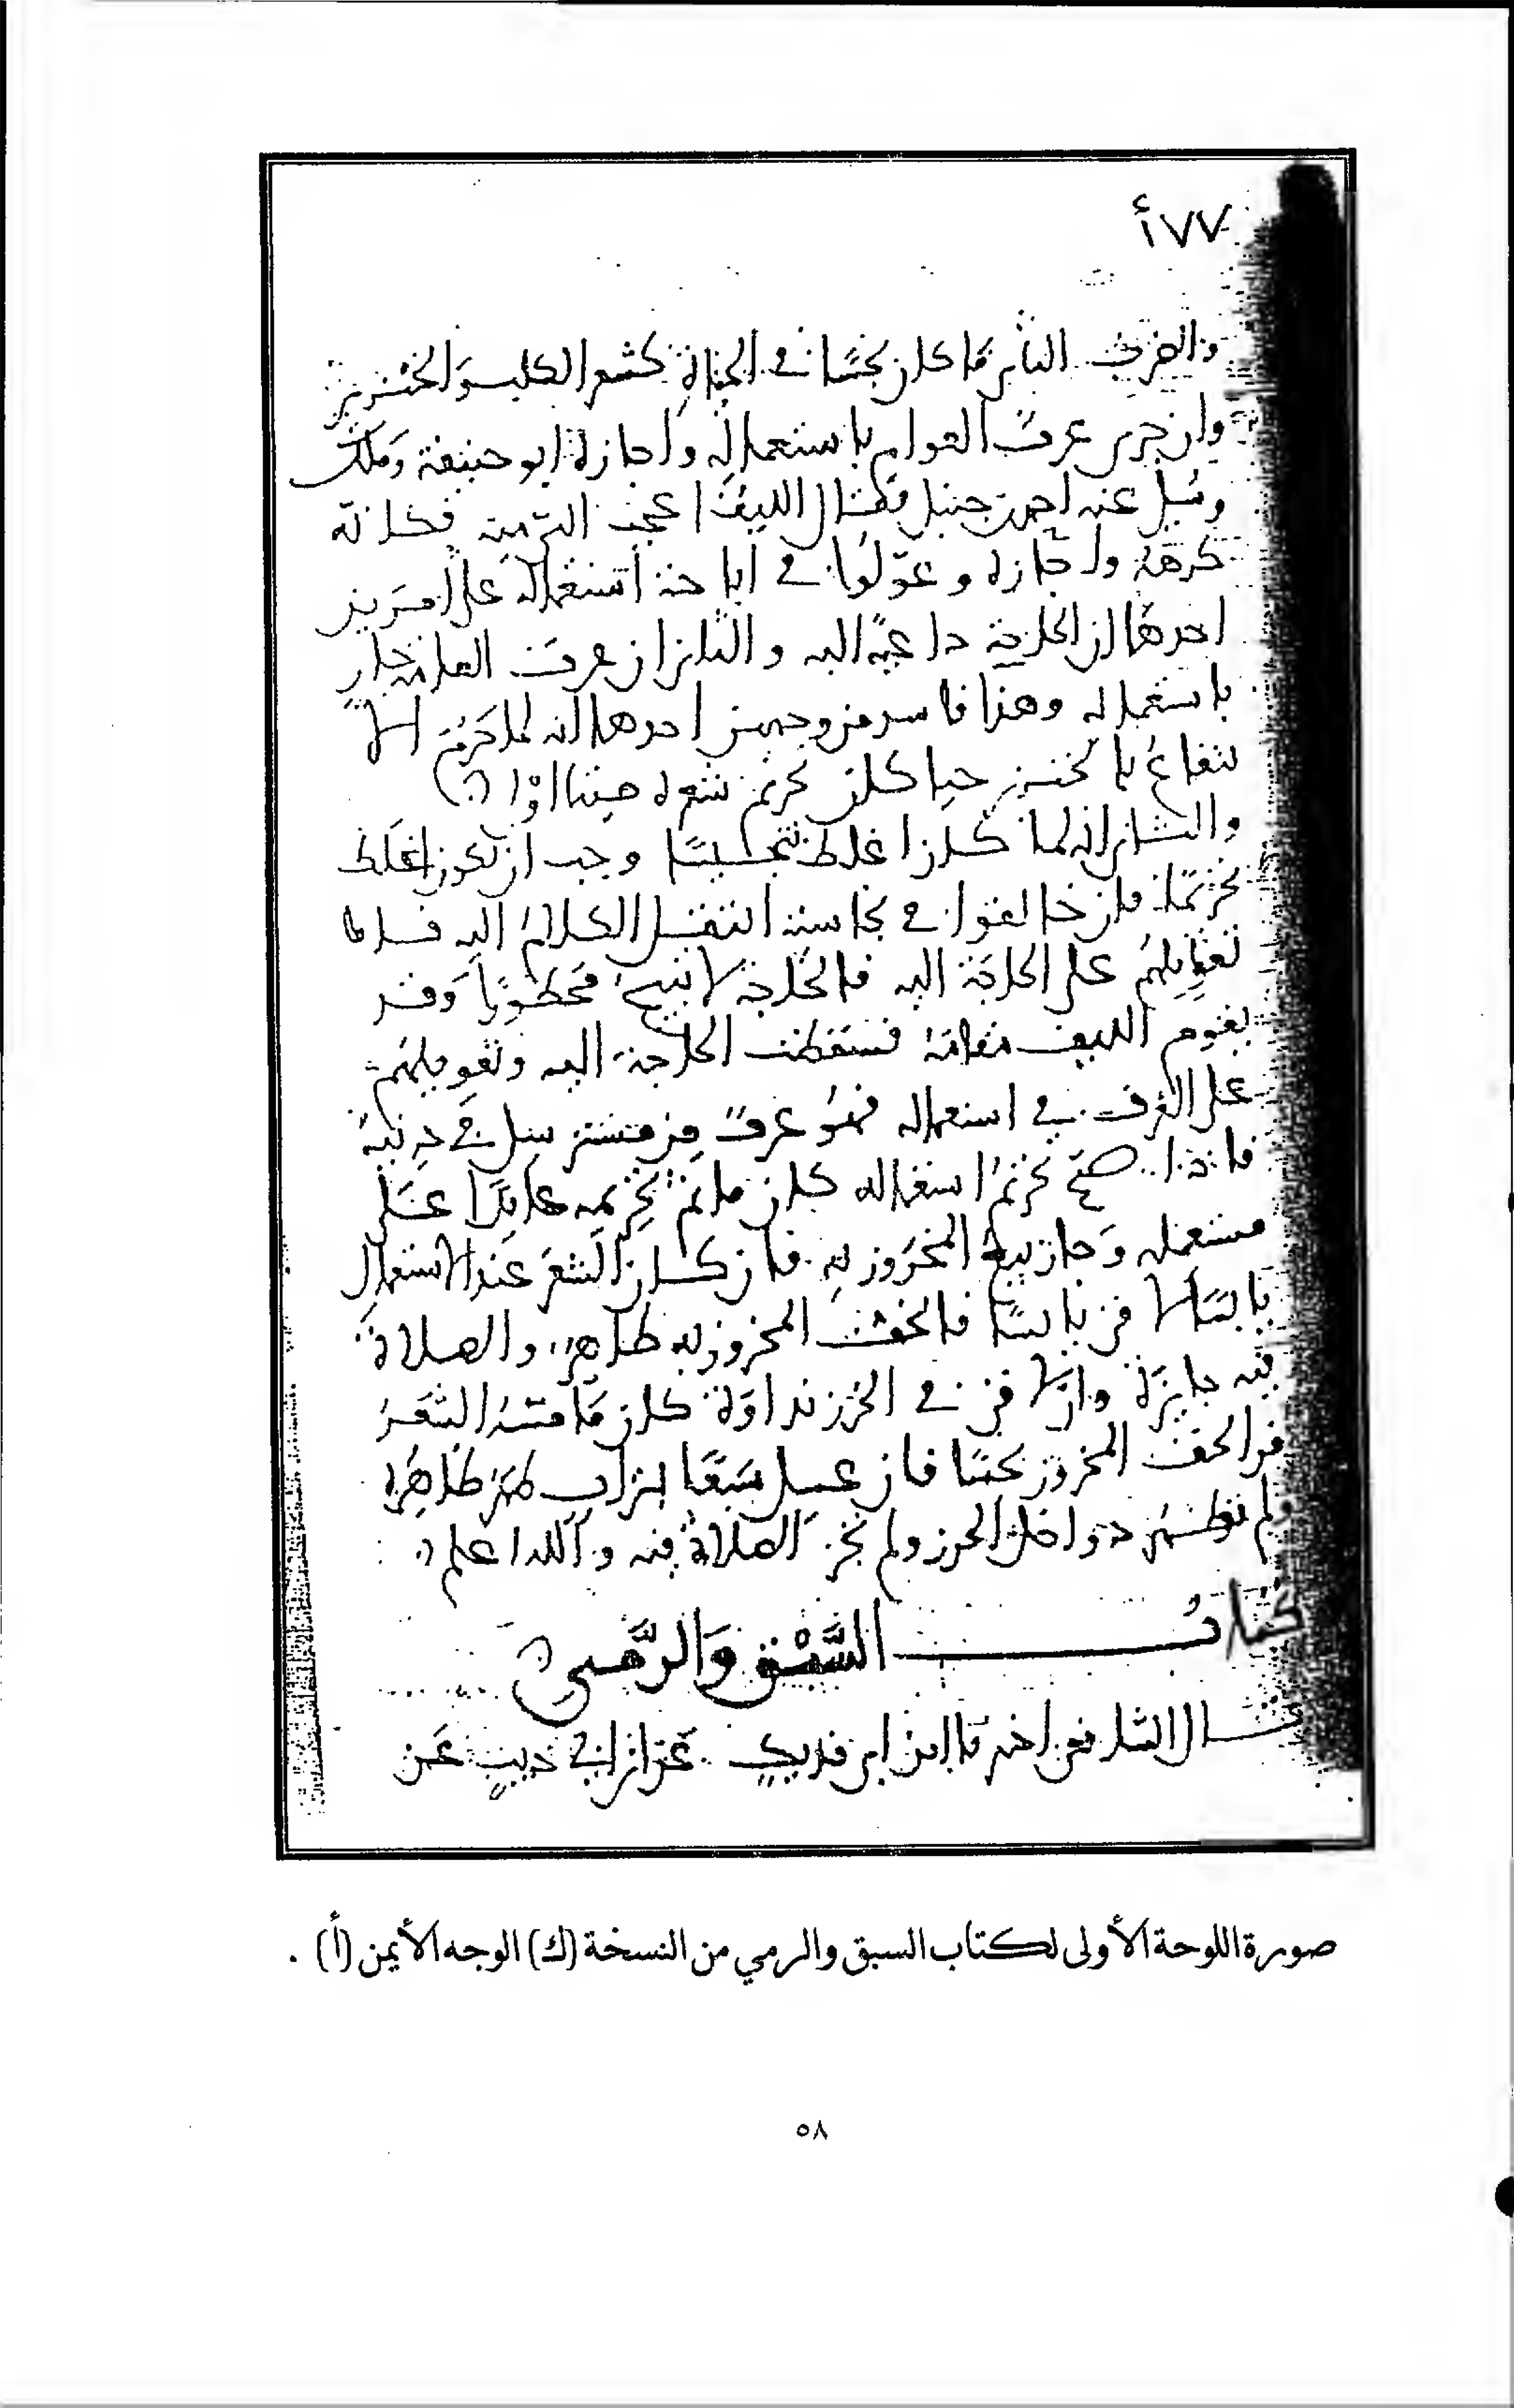 ١٧٧أ
والضرب الثاني ما كان نجسًا في الحياة كشعر الكلب والخنزير
وان جرى عرف العوام باستعماله واجازه ابو حنيفة ومالك
وسئل عنه احمد بن حنبل فقال الليف اعجب الي منه فكانه
كرهه واجازه وعولوا في اباحة استعماله على امرين
احدهما ان الحاجة داعية اليه والثاني ان عرف العامة جار
باستعماله وهذا فاسد من وجهين احدهما انه لما حرم الا
نتفاع بالخنزير حيا كان تحريم شعره ميتا اولى
والثاني انه لما كان اغلظ تنجيسًا وجب ان يكون اغلظ
تحريمًا فان خالفوا في نجاسته انتقل الكلام اليه فاما
تعويلهم على الحاجة اليه فالحاجة لا تبيح محظورًا وقد
يقوم الليف مقامه فسقطت الحاجة اليه وتعويلهم
على العرف في استعماله فهو عرف من مسترسل في دينه
فاذا صح تحريم استعماله كان ماثم تحريمه عايدًا على
مستعمله وجاز بيع المخروز به فان كان الشعر عند الاستعمال
يابسًا لاقى يابسًا فالخف المخروز به طاهر والصلاة
فيه جايزة وان لاقى في الخرز نداوة كان ما مسه الشعر
من الخف المخروز نجسًا فان غسل سبعًا بتراب طهر ظاهره
ولم تطهر دواخل الخرز ولم تجز الصلاة فيه والله اعلم
كتاب السَّبْق وَالرَّمي
قال الشافعي اخبرنا ابن ابي فديك عن ابن ابي ذيب عن
صورة اللوحة الأولى لكتاب السبق والرمي من النسخة (ك) الوجه الأيمن (أ) .
٥٨